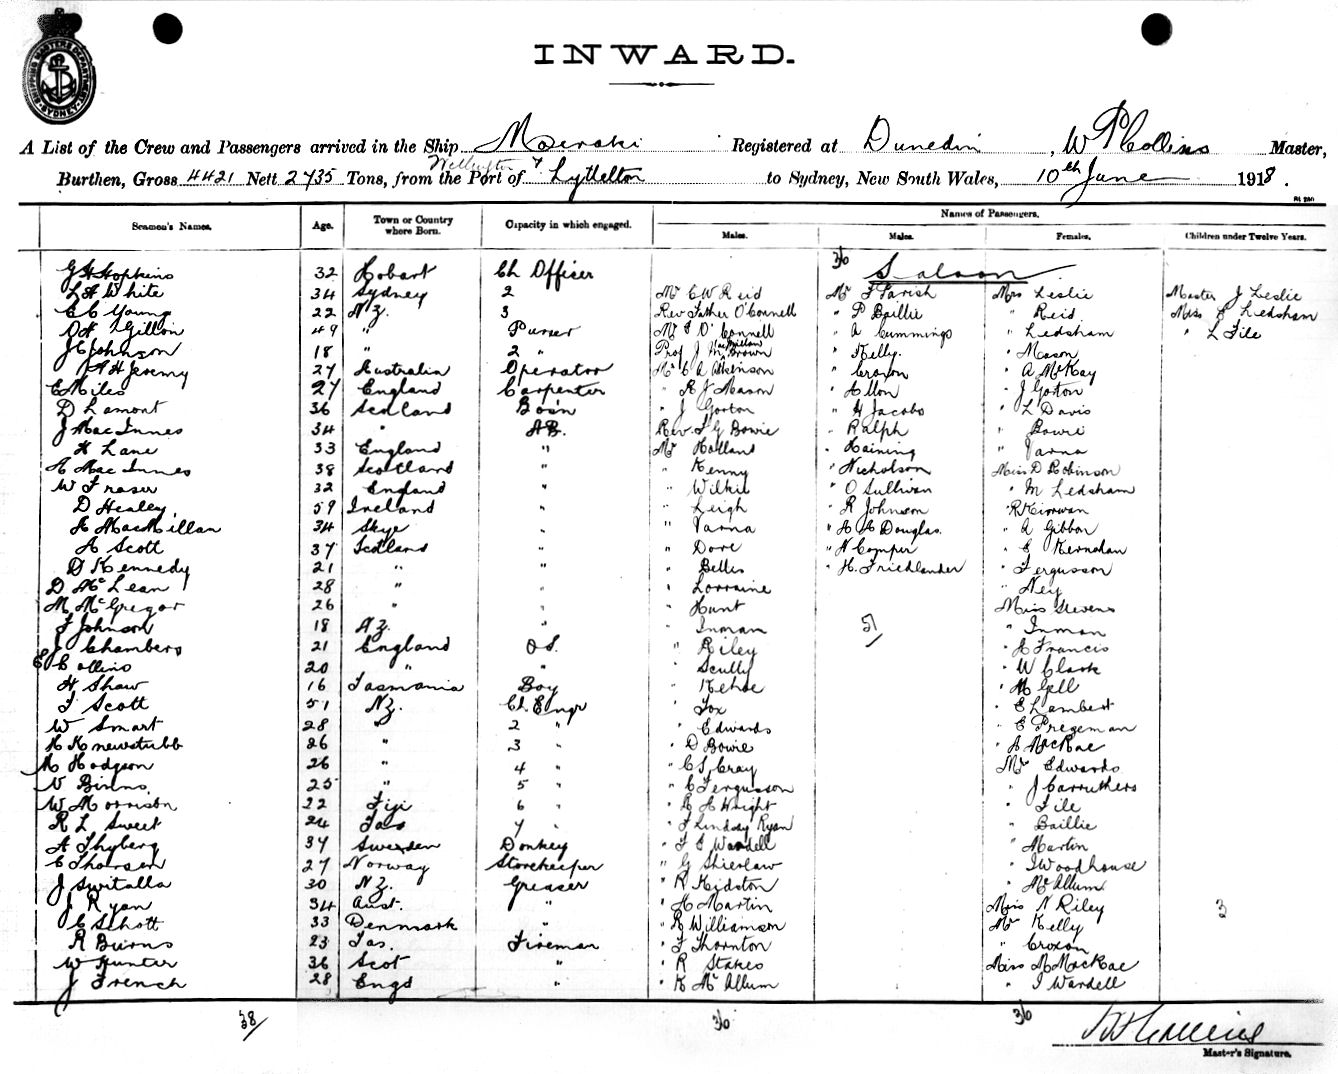 SHIPPING MASTERS DEPARTMENT SYDNEY
INWARD.
A List of the Crew and Passengers arrived in the Ship Moeraki Registered at Dunedin, W P Collins Master,
Burthen, Gross 4421 Nett 2735 Tons, from the Port of Wellington & Lyttelton to Sydney, New South Wales, 10th June 1918.
Seamen's Names. Age. Town or Country where Born. Capacity in which engaged. Names of Passengers.
Males. Males. Females. Children under Twelve Years.
36 Saloon
G H Hopkins 32 Hobart Ch Officer
L A White 34 Sydney 2 Mr C W Reid Mr F Parish Mrs Leslie Master J Leslie
C C Young 22 N.Z. 3 Rev Father O'Connell " P Baillie " Reid Miss E Ledsham
O H Gillon 49 " Purser Mr J O'Connell " A Cummings " Ledsham " L File
J C Johnson 18 " 2 " Prof J MacMillan Brown " Kelly. " Mason
A H Jeremy 27 Australia Operator Mr C A Atkinson " Croxon " A McKay
E Miles 27 England Carpenter " R J Mason " Allon " J Gorton
D Lamont 36 Scotland Bosn " J Gorton " H Jacobs " L Davis
J MacInnes 34 " AB. Rev. F G Bowie " Ralph " Bowie
H Lane 33 England " Mr Holland " Haining " Varna
A MacInnes 38 Scotland " " Kenny " Nicholson Miss D Robinson
W Fraser 32 England " " Wilkie " O Sullivan " M Ledsham
D Healey, 59 Ireland " " Leigh " R Johnson " R Kirwan
A MacMillan 34 Skye " " Varna " H A Douglas. " A Gibbon
A Scott 37 Scotland " " Dore " N Comper " E Kernohan
D Kennedy 21 " " " Bellis " H. Friedlander " Fergusson
D McLean 28 " " " Lorraine " Ney
M McGregor 26 " " " Hunt Miss Stevens
F Johnson 18 N.Z. " " Inman 51 " Inman
J Chambers 21 England O.S. " Riley " A Francis
E Collins 20 " " " Scully " W Clark
H Shaw 16 Tasmania Boy " Kehoe " M Gell
F Scott 51 N.Z. Ch. Engr " Fox " E Lambert
W Smart 28 " 2 " " Edwards " E Pregeman
K Knewstubb 26 " 3 " " D Bowie " A MacRae
A Hodgson 26 " 4 " " C S Gray Mrs Edwards
V Binns. 25 " 5 " " C Fergusson " J Carruthers
W Morrison 22 Fiji 6 " " R A Wright " File
R L Sweet 24 Tas 7 " " F Lindsay Ryan " Baillie
A Thyberg 37 Sweden Donkey " F E Wardell " Martin
C Thorsen 27 Norway Storekeeper " G Shierlaw " J Woodhouse
J Switalla 30 N.Z. Greaser " R Kidston " McAllum
J Ryan 34 Aust. " " A Martin Miss N Riley 3
C Schott 33 Denmark " " R Williamson Mrs Kelly
R Burns 23 Tas. Fireman " F Thornton " Croxon
W Hunter 36 Scot " " R Stakes Miss M MacRae
J French 28 Engd " " K McAllum " J Wardell
38 36 36
W P Collins
Master's Signature.